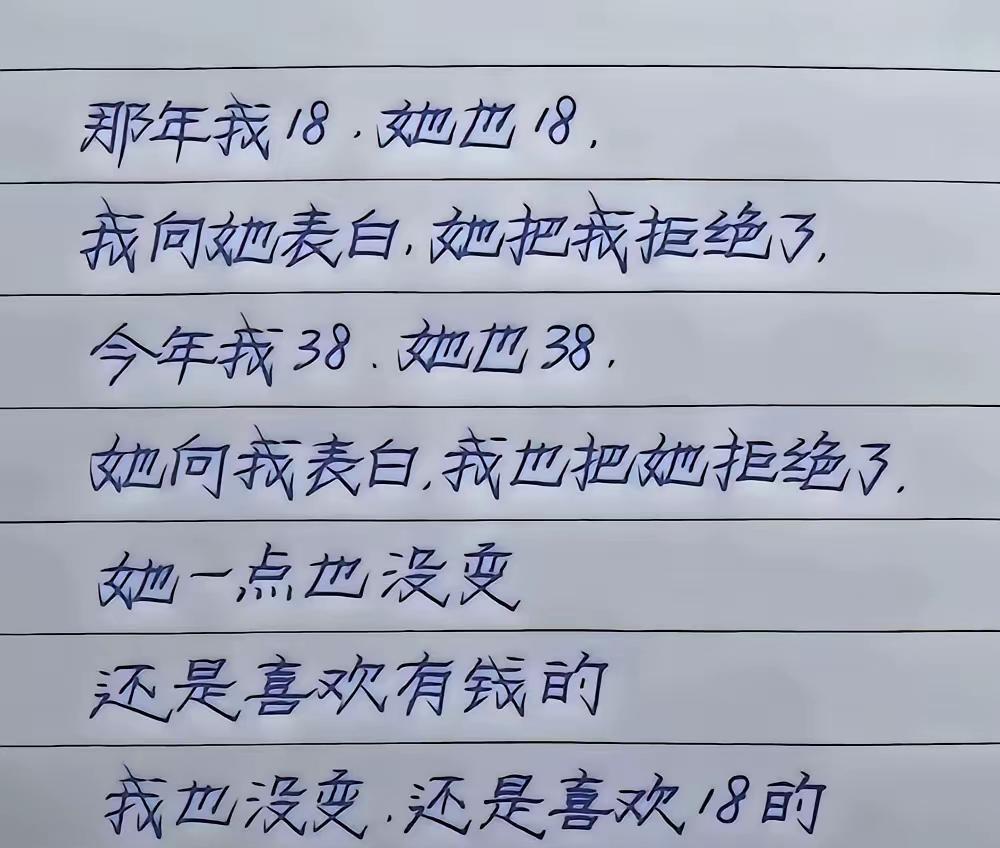 那年我18.她也18.
我向她表白,她把我拒绝了,
今年我38.她也38.
她向我表白,我也把她拒绝了.
她一点也没变
还是喜欢有钱的
我也没变.还是喜欢18的